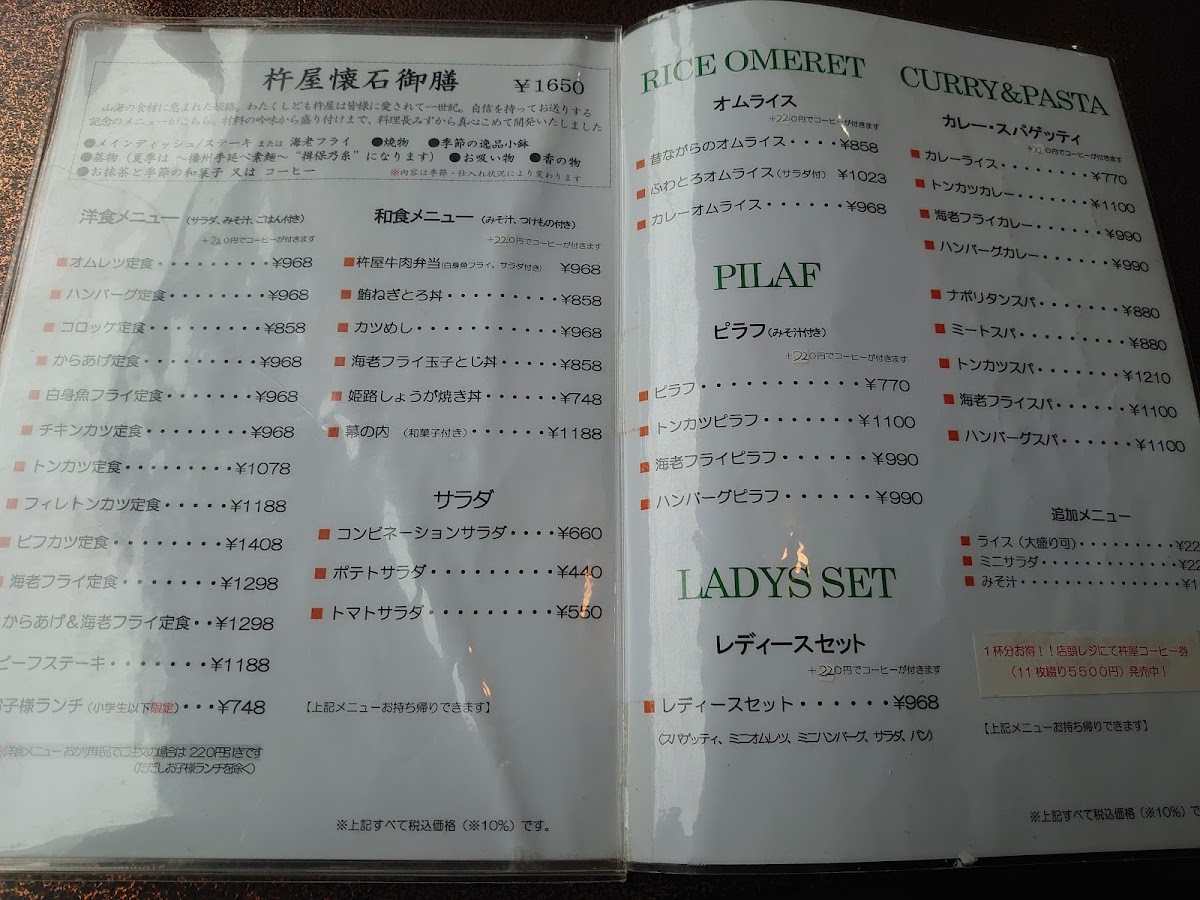 杵屋懐石御膳 ¥1650
山海の食材に恵まれた姫路。わたくしども杵屋は皆様に愛されて一世紀。自信を持ってお送りする
記念のメニューがこちら。材料の吟味から盛り付けまで、料理長みずから真心こめて開発いたしました
●メインディッシュ/ステーキ または 海老フライ ●焼物 ●季節の逸品小鉢
●蒸物（夏季は ～播州手延べ素麺～“揖保乃糸”になります） ●お吸い物 ●香の物
●お抹茶と季節の和菓子 又は コーヒー ※内容は季節・仕入れ状況により変わります
洋食メニュー（サラダ、みそ汁、ごはん付き）
+220円でコーヒーが付きます
■オムレツ定食・・・・・・・・・¥968
■ハンバーグ定食・・・・・・・・¥968
■コロッケ定食・・・・・・・・・¥858
■からあげ定食・・・・・・・・・¥968
■白身魚フライ定食・・・・・・・¥968
■チキンカツ定食・・・・・・・・¥968
■トンカツ定食・・・・・・・・・¥1078
■フィレトンカツ定食・・・・・¥1188
■ビフカツ定食・・・・・・・・¥1408
■海老フライ定食・・・・・・・¥1298
からあげ＆海老フライ定食・・¥1298
ビーフステーキ・・・・・・・¥1188
お子様ランチ（小学生以下限定）・・・¥748
※洋食メニュー おかず単品でご注文の場合は 220円引きです
（ただしお子様ランチを除く）
和食メニュー（みそ汁、つけもの付き）
+220円でコーヒーが付きます
■杵屋牛肉弁当（白身魚フライ、サラダ付き） ¥968
■鮪ねぎとろ丼・・・・・・・・・¥858
■カツめし・・・・・・・・・・・¥968
■海老フライ玉子とじ丼・・・・・¥858
■姫路しょうが焼き丼・・・・・・¥748
■幕の内 （和菓子付き）・・・・・・¥1188
サラダ
■コンビネーションサラダ・・・・¥660
■ポテトサラダ・・・・・・・・・¥440
■トマトサラダ・・・・・・・・・¥550
【上記メニューお持ち帰りできます】
※上記すべて税込価格（※10%）です。
RICE OMERET
オムライス
+220円でコーヒーが付きます
■昔ながらのオムライス・・・・¥858
■ふわとろオムライス（サラダ付） ¥1023
■カレーオムライス・・・・・・¥968
PILAF
ピラフ（みそ汁付き）
+220円でコーヒーが付きます
■ピラフ・・・・・・・・・・・¥770
■トンカツピラフ・・・・・・・¥1100
■海老フライピラフ・・・・・・¥990
■ハンバーグピラフ・・・・・・¥990
LADYS SET
レディースセット
+220円でコーヒーが付きます
■レディースセット・・・・・・¥968
（スパゲッティ、ミニオムレツ、ミニハンバーグ、サラダ、パン）
CURRY&PASTA
カレー・スパゲッティ
+220円でコーヒーが付きます
■カレーライス・・・・・・・¥770
■トンカツカレー・・・・・・¥1100
■海老フライカレー・・・・・¥990
■ハンバーグカレー・・・・・¥990
■ナポリタンスパ・・・・・・¥880
■ミートスパ・・・・・・・・¥880
■トンカツスパ・・・・・・・¥1210
■海老フライスパ・・・・・・¥1100
■ハンバーグスパ・・・・・・¥1100
追加メニュー
■ライス（大盛り可）・・・・・・・・・¥22
■ミニサラダ・・・・・・・・・・・・・¥22
■みそ汁・・・・・・・・・・・・・・・¥1
1杯分お得！！店頭レジにて杵屋コーヒー券
（11枚綴り5500円）発売中！
【上記メニューお持ち帰りできます】
※上記すべて税込価格（※10%）で